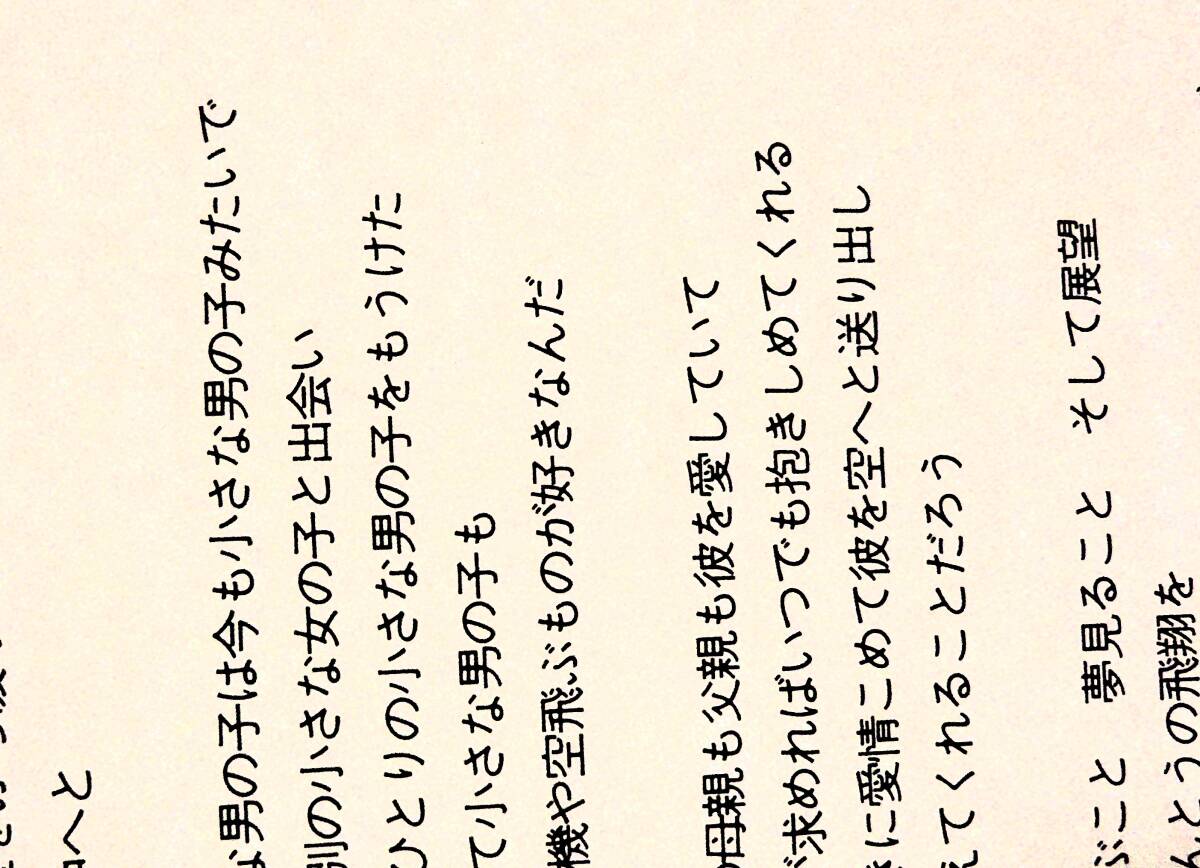 へと
な男の子は今も小さな男の子みたいで
別の小さな女の子と出会い
ひとりの小さな男の子をもうけた
て小さな男の子も
機や空飛ぶものが好きなんだ
の母親も父親も彼を愛していて
が求めればいつでも抱きしめてくれる
に愛情こめて彼を空へと送り出し
えてくれることだろう
ぶこと 夢見ること そして展望
んとうの飛翔を